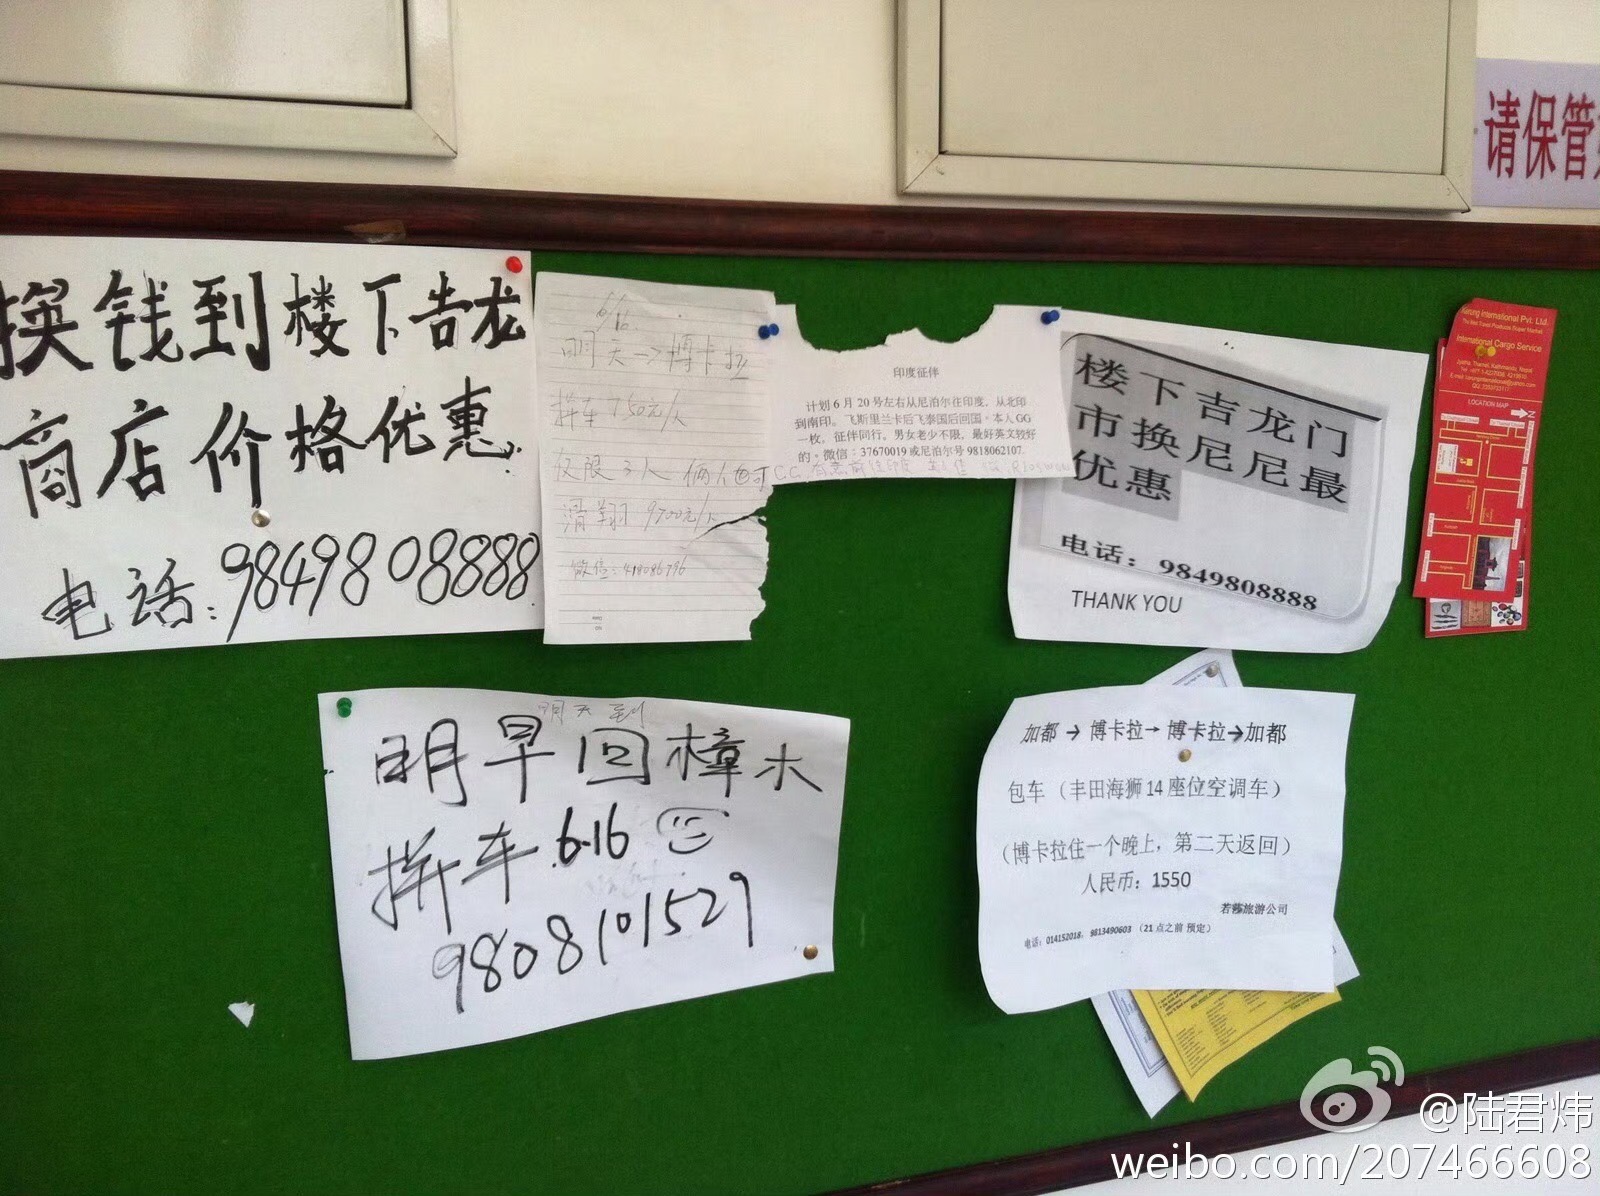 请保管
换钱到楼下吉龙
商店价格优惠
电话:9849808888
6/16
明天→博卡拉
拼车 750元/人
仅限3人 俩人也可
滑翔 9700元/人
微信:418086796
印度征伴
计划 6 月 20 号左右从尼泊尔往印度,从北印
到南印。飞斯里兰卡后飞泰国后回国·本人GG
一枚,征伴同行。男女老少不限,最好英文较好
的·微信:37670019 或尼泊尔号 9818062107.
楼下吉龙门
市换尼尼最
优惠
电话:9849808888
THANK YOU
Kerung International Pvt. Ltd.
International Cargo Service
LOCATION MAP
明天到
明早回樟木
拼车 6.16
9808101529
加都→博卡拉→博卡拉→加都
包车(丰田海狮14座位空调车)
(博卡拉住一个晚上,第二天返回)
人民币:1550
若薇旅游公司
电话:014152018,9813490603(21点之前 预定)
@陆君炜
weibo.com/207466608